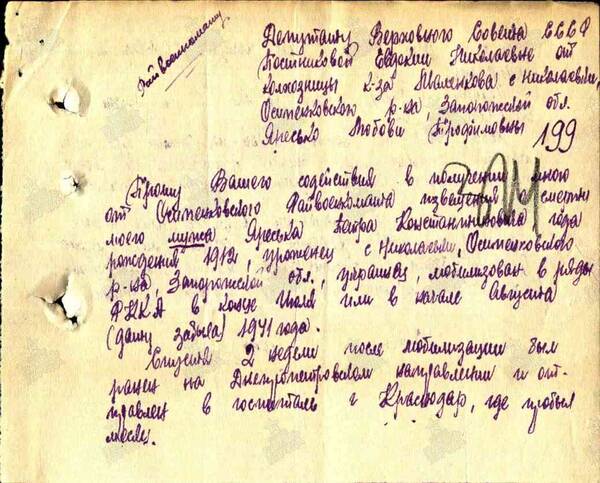 Райвоенкомату
Депутату Верховного Совета СССР
Постниковой Евдокии Николаевне от
колхозницы к-за Маленкова с Николаевки,
Осипенковского р-на, Запорожской обл.
Яресько Любови Трофимовны
199
Прошу Вашего содействия в получении мною
от Осипенковского Райвоенкомата извещения о смерти
моего мужа Яреська Петра Константиновича года
рождения 1912, уроженец с Николаевки, Осипенковского
р-на, Запорожской обл., украинец, мобилизован в ряды
РККА в конце Июля или в начале Августа
(дату забыла) 1941 года.
Спустя 2 недели после мобилизации был
ранен на Днепропетровском направлении и от-
правлен в госпиталь г Краснодар, где пробыл
месяц.